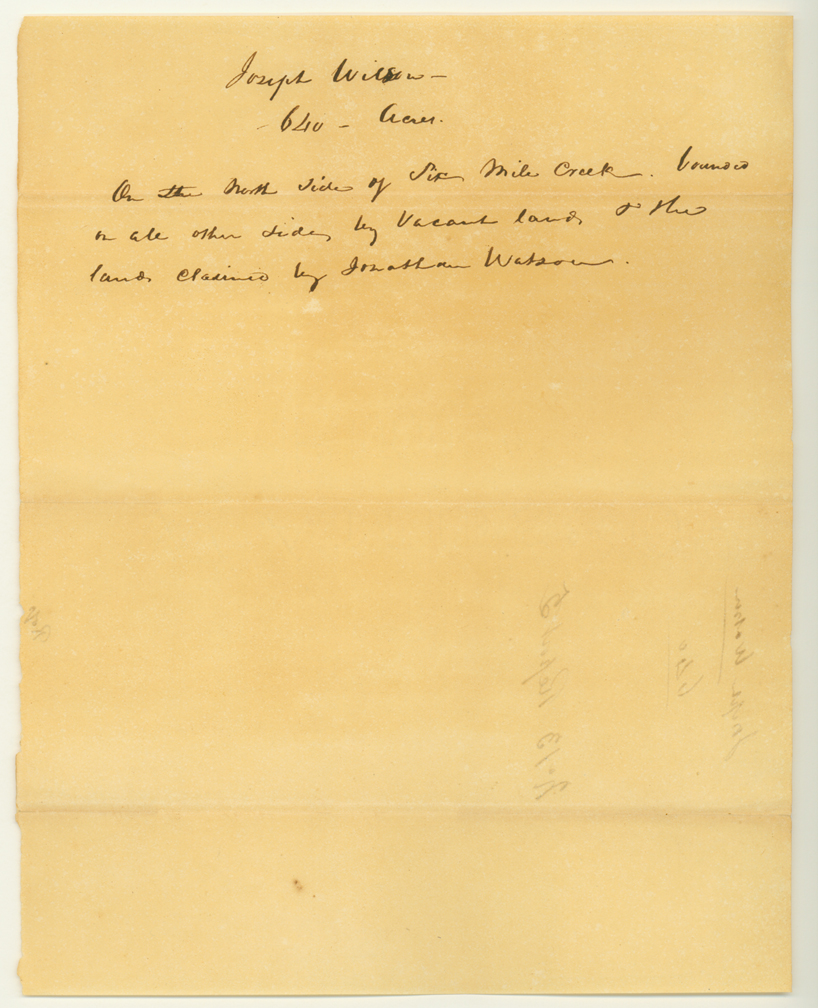 Joseph Wilson –
– 640 – Acres.
On the North side of Six Mile Creek. bounded
on all other sides by Vacant lands & the
lands claimed by Jonathan Watson.
640